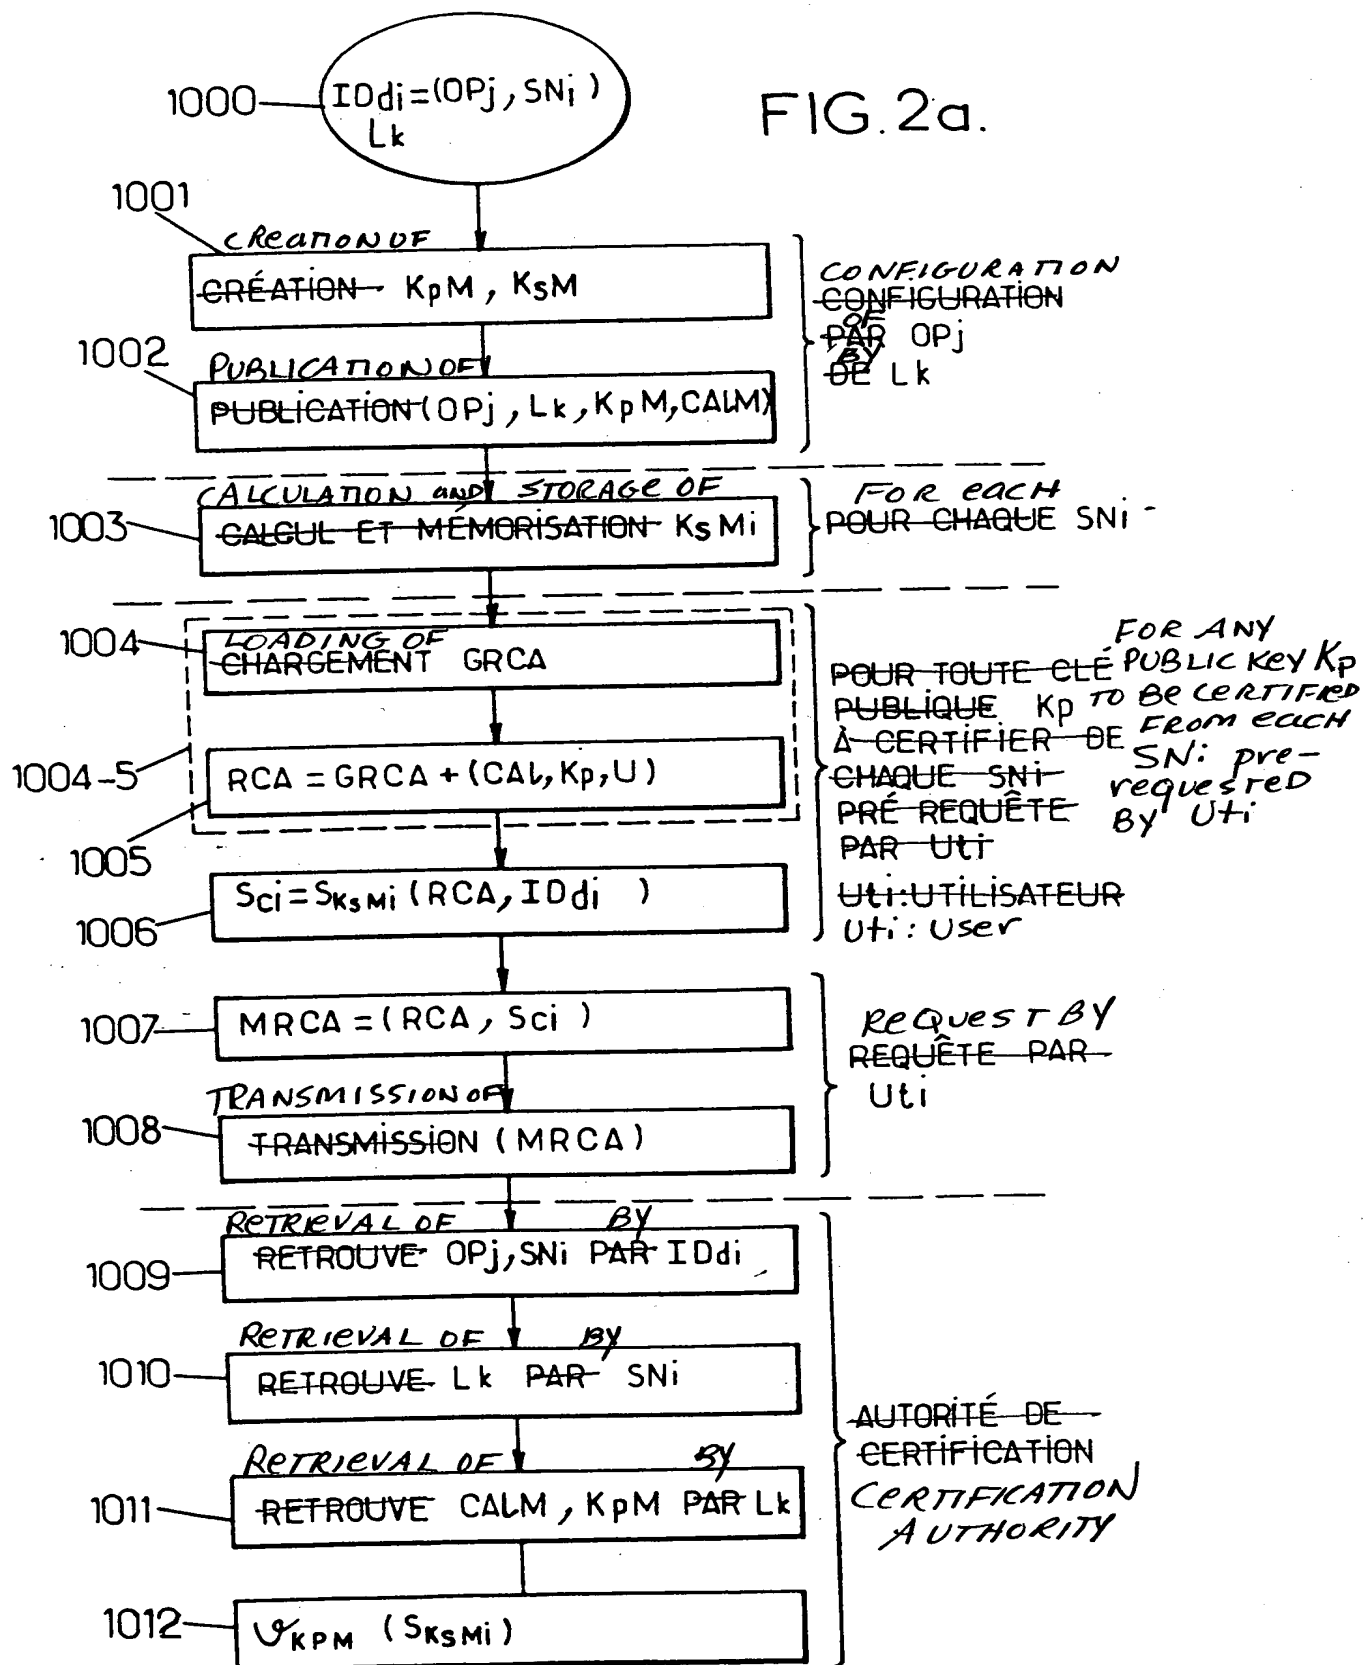 FIG. 2a.
1000
IDdi=(OPj, SNi)
Lk
1001
CREATION OF
CRÉATION KpM, KsM
1002
PUBLICATION OF
PUBLICATION (OPj, Lk, KpM, CALM)
CONFIGURATION
CONFIGURATION
OF
PAR OPj
BY
DE Lk
CALCULATION AND STORAGE OF
1003
CALCUL ET MÉMORISATION KsMi
FOR each
POUR CHAQUE SNi
1004
LOADING OF
CHARGEMENT GRCA
1004-5
RCA = GRCA + (CAL, Kp, U)
1005
1006
Sci = SKsMi (RCA, IDdi)
POUR TOUTE CLÉ
PUBLIQUE Kp
À CERTIFIER DE
CHAQUE SNi
PRÉ REQUÊTE
PAR Uti
Uti: UTILISATEUR
Uti: User
FOR ANY
PUBLIC KEY Kp
TO BE CERTIFIED
FROM each
SNi pre-
requested
BY Uti
1007
MRCA = (RCA, Sci)
TRANSMISSION OF
1008
TRANSMISSION (MRCA)
REQUEST BY
REQUÊTE PAR
Uti
RETRIEVAL OF BY
1009
RETROUVE OPj, SNi PAR IDdi
RETRIEVAL OF BY
1010
RETROUVE Lk PAR SNi
RETRIEVAL OF BY
1011
RETROUVE CALM, KpM PAR Lk
1012
𝒱KPM (SKsMi)
AUTORITÉ DE
CERTIFICATION
CERTIFICATION
AUTHORITY